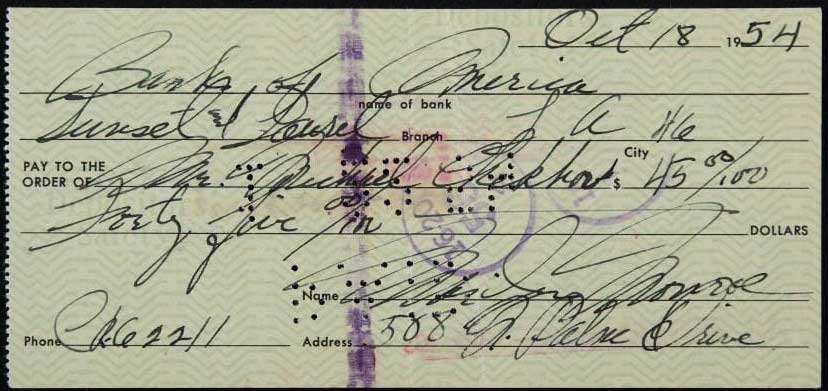 Oct 18 1954
Bank of America
name of bank
Sunset and Laurel Branch L A 46
City
PAY TO THE
ORDER OF Mr. Michael Chekhov $ 45 00/100
Forty five 00/100 DOLLARS
Name Marilyn Monroe
Phone CR62211 Address 508 N. Palm Drive